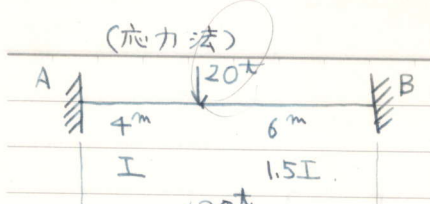 (応力法)
A 20t B
4m 6m
I 1.5I.